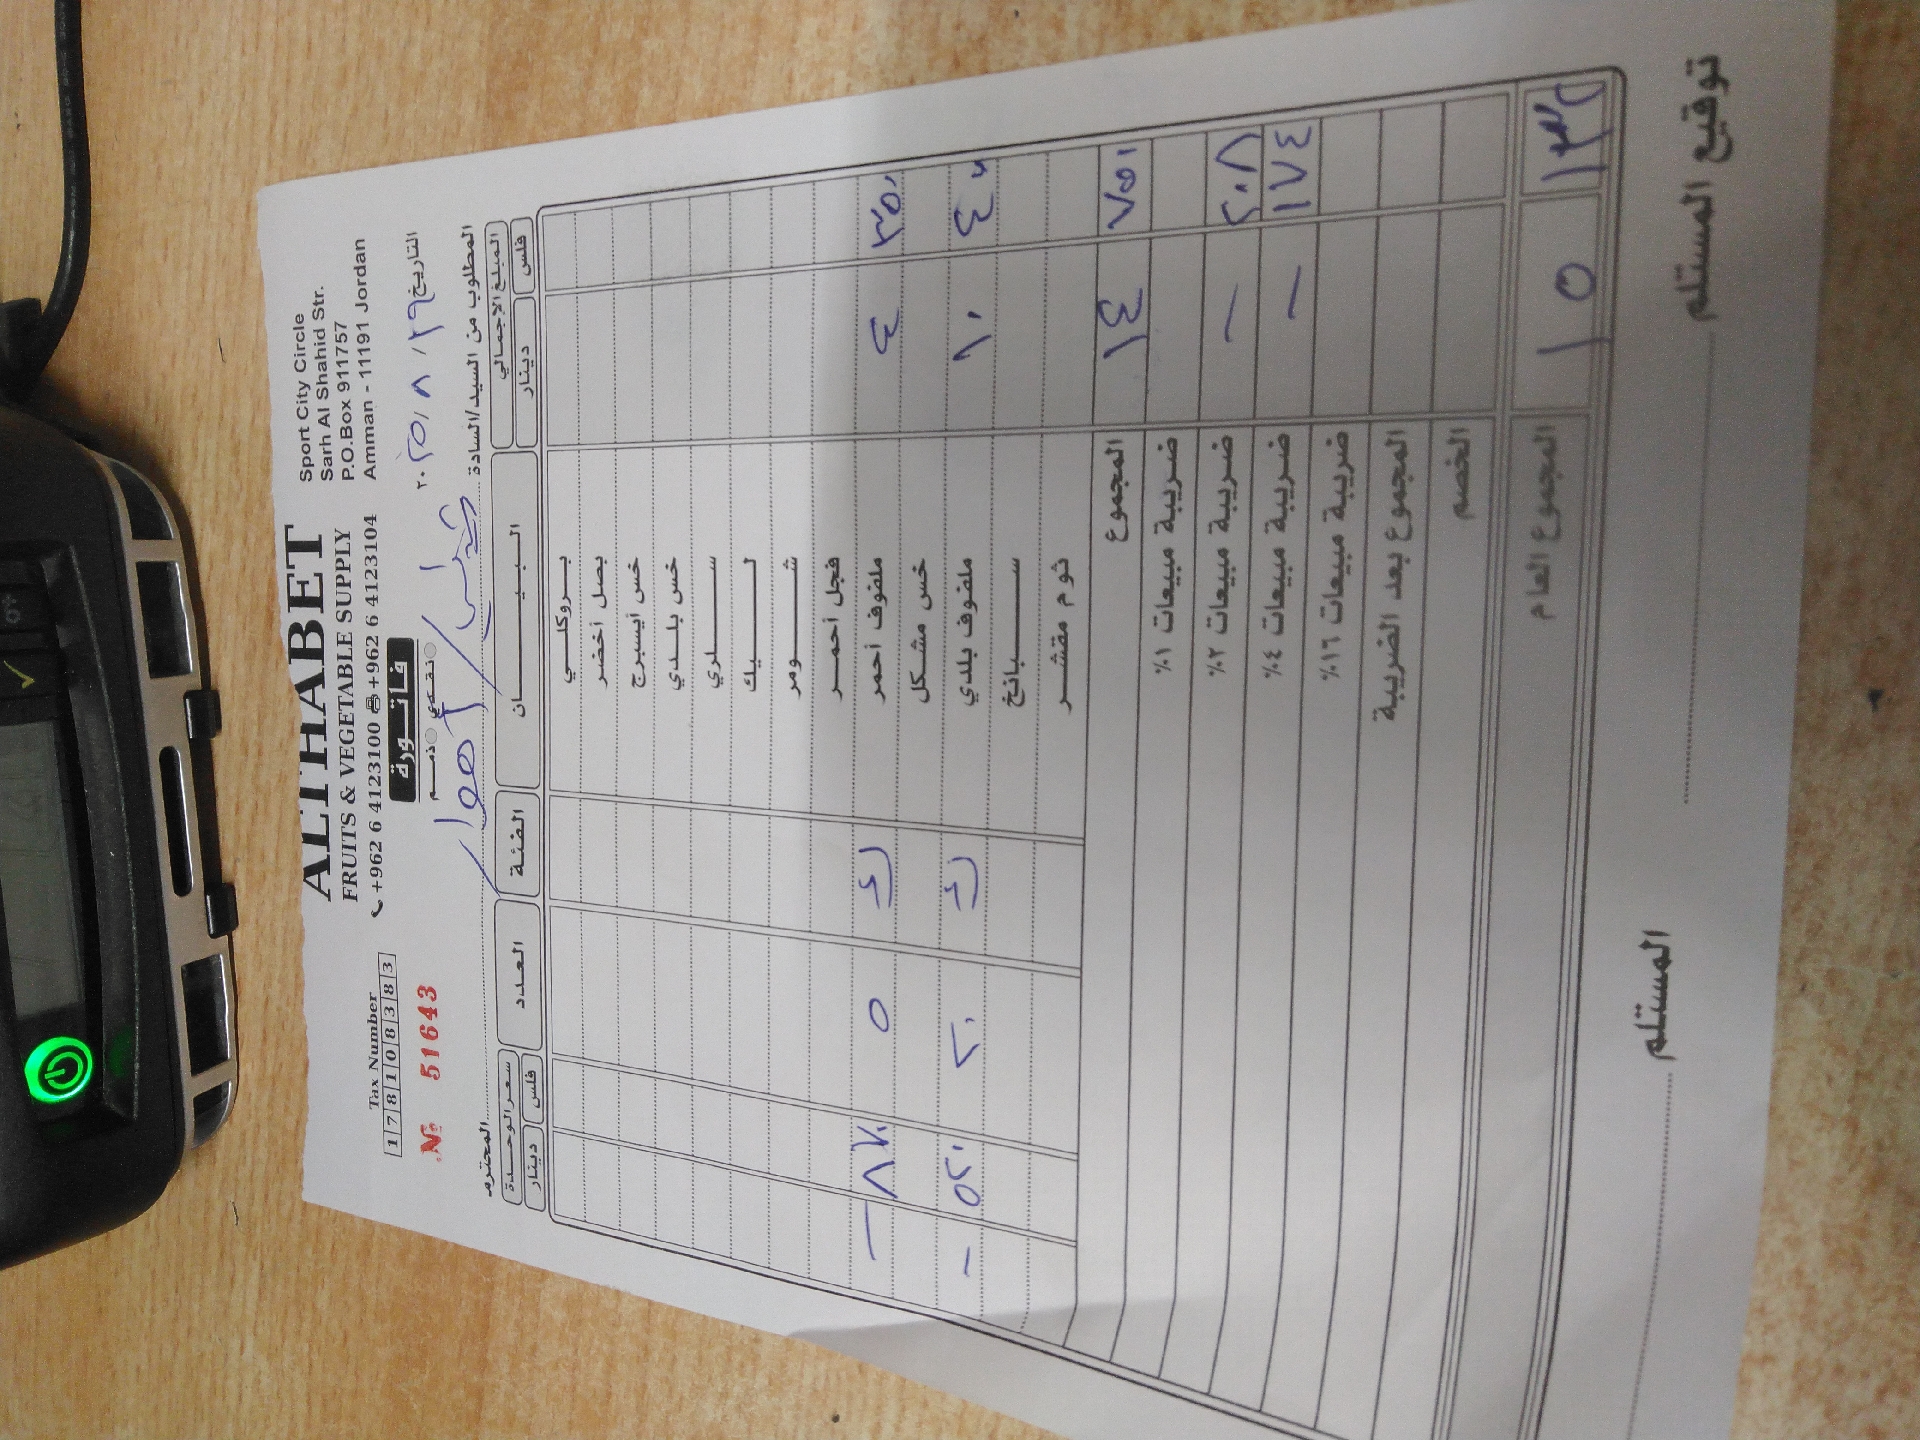 ALTHABET
FRUITS & VEGETABLE SUPPLY
+962 6 4123100 +962 6 4123104
Sport City Circle
Sarh Al Shahid Str.
P.O.Box 911757
Amman - 11191 Jordan
Tax Number
1 7 8 1 0 8 3 8 3
№ 51643
فاتورة
ذمم نقدي
التاريخ ٢٦ / ٨ / ٢٠٢٥
المطلوب من السيد/السادة المحترم
المبلغ الإجمالي البيان الفئة العدد سعر الوحدة
فلس دينار فلس دينار
بروكلي
بصل أخضر
خس أيسبرج
خس بلدي
سلري
ليك
شومر
فجل أحمر
٣٥٠ ٤ ملفوف أحمر ك ٥ ٨٧٠ -
خس مشكل
١٠ ملفوف بلدي ك ٢٠ ٥٢٠ -
سبانخ
ثوم مقشر
٧٥٠ ١٤ المجموع
ضريبة مبيعات ١٪
٢٠٨ - ضريبة مبيعات ٢٪
١٧٤ - ضريبة مبيعات ٤٪
ضريبة مبيعات ١٦٪
المجموع بعد الضريبة
الخصم
١٣٢ ١٥ المجموع العام
توقيع المستلم المستلم